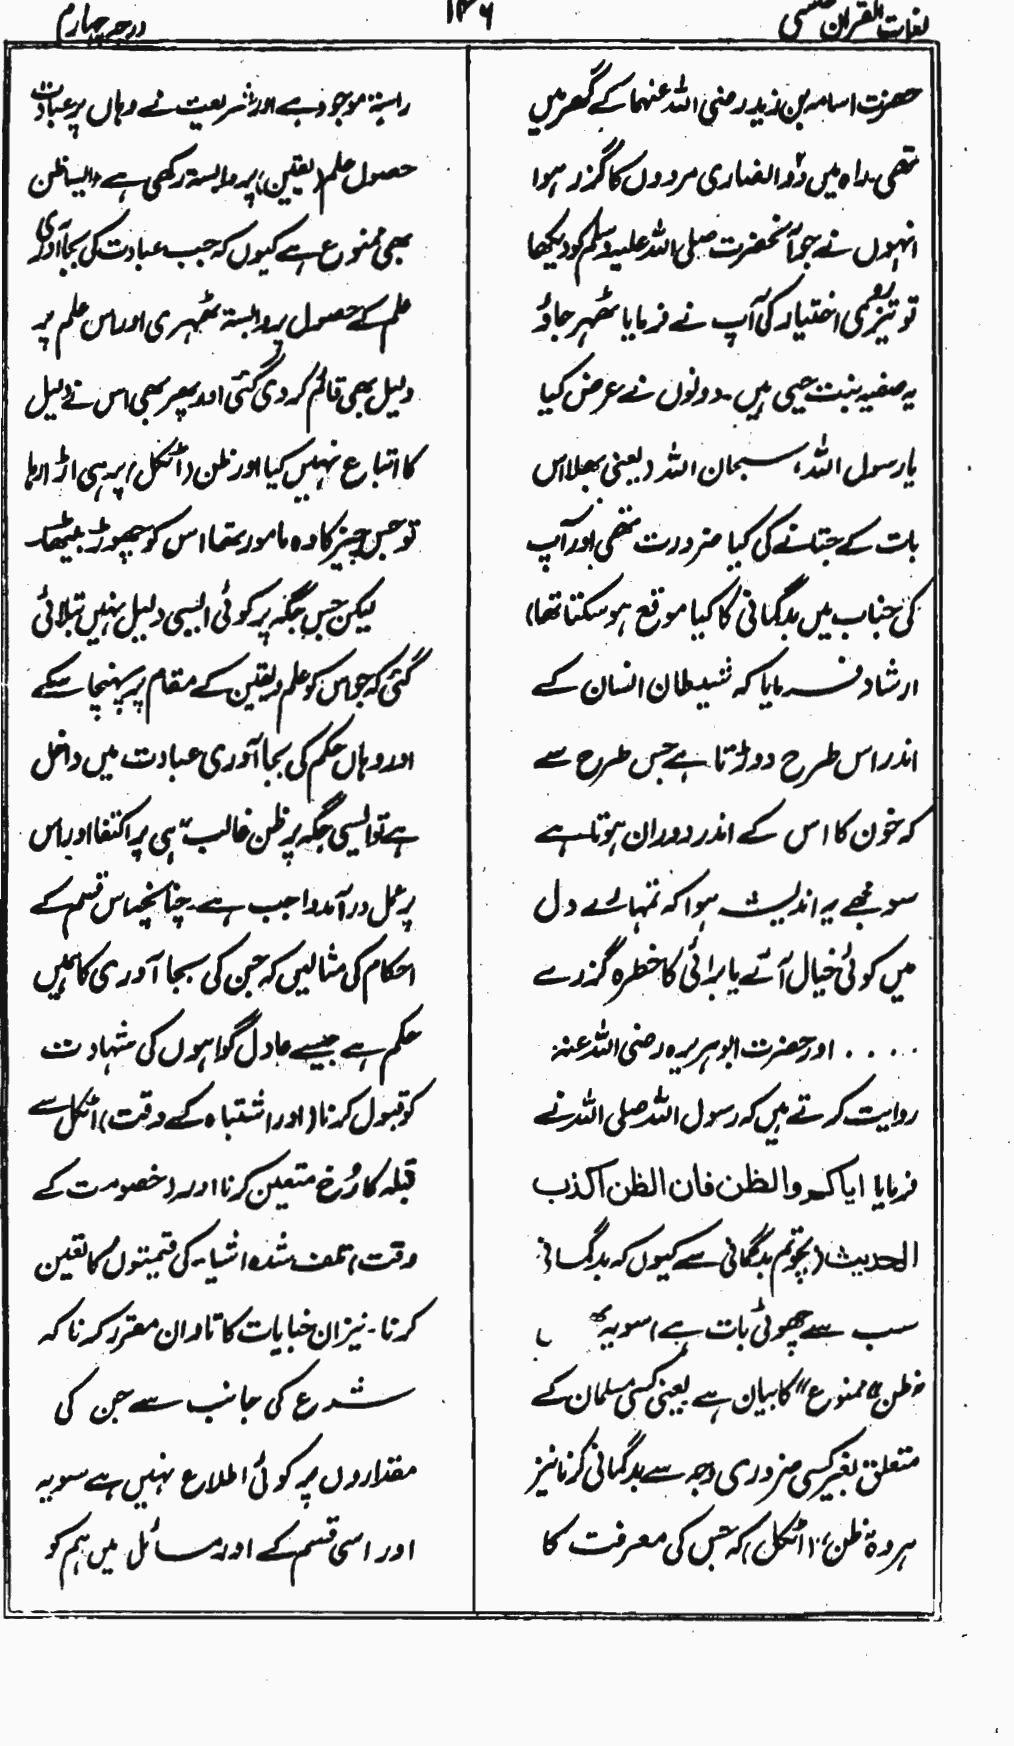 لغات القرآن
۱۴۶
درجہ چہارم
حضرت اسامہ بن زید رضی اللہ عنہما کے گھر میں
تھی۔ راہ میں دو انصاری مردوں کا گزر ہوا
انہوں نے جو آنحضرت صلی اللہ علیہ وسلم کو دیکھا
تو تیز روی اختیار کی آپ نے فرمایا ٹھہر جاؤ
یہ صفیہ بنت حیی ہیں۔ دونوں نے عرض کیا
یا رسول اللہ، سبحان اللہ (یعنی بھلا اس
بات کے جتانے کی کیا ضرورت تھی اور آپ
کی جناب میں بدگمانی کا کیا موقع ہو سکتا تھا)
ارشاد فرمایا کہ شیطان انسان کے
اندر اس طرح دوڑتا ہے جس طرح سے
کہ خون کا اس کے اندر دوران ہوتا ہے
سو مجھے یہ اندیشہ ہوا کہ تمہارے دل
میں کوئی خیال آئے یا برائی کا خطرہ گزرے
.... اور حضرت ابو ہریرہ رضی اللہ عنہ
روایت کرتے ہیں کہ رسول اللہ صلی اللہ نے
فرمایا ایاکم والظن فان الظن اکذب
الحدیث (بچو تم بدگمانی سے کیوں کہ بدگمانی
سب سے جھوٹی بات ہے) سو یہ
ظن "ممنوع" کا بیان ہے یعنی کسی مسلمان کے
متعلق بغیر کسی ضروری وجہ سے بدگمانی کرنا نیز
ہر وہ ظن (اٹکل) کہ جس کی معرفت کا
راستہ موجود ہے اور شریعت نے وہاں پر عبادت
حصول علم (یقین) پر وابستہ رکھی ہے، ایسا ظن
بھی ممنوع ہے کیوں کہ جب عبادت کی بجا آوری
علم کے حصول پر وابستہ ٹھہری اور اس علم پر
دلیل بھی قائم کر دی گئی اور پھر بھی اس نے دلیل
کا اتباع نہیں کیا اور ظن (اٹکل) پر ہی اڑا رہا
تو جس چیز کا وہ مامور تھا اس کو چھوڑ بیٹھا۔
لیکن جس جگہ پر کوئی ایسی دلیل نہیں بتلائی
گئی کہ جو اس کو علم و یقین کے مقام پر پہنچا سکے
اور وہاں حکم کی بجا آوری عبادت میں داخل
ہے تو ایسی جگہ پر ظن غالب ہی پر اکتفا اور اس
پر عمل درآمد واجب ہے۔ چنانچہ اس قسم کے
احکام کی مثالیں کہ جن کی بجا آوری کا ہمیں
حکم ہے جیسے عادل گواہوں کی شہادت
کو قبول کرنا (اور اشتباہ کے وقت) اٹکل سے
قبلہ کا رخ متعین کرنا اور (خصومت کے
وقت) تلف شدہ اشیاء کی قیمتوں کا تعین
کرنا۔ نیز ان جنایات کا تاوان مقرر کرنا کہ
شرع کی جانب سے جن کی
مقداروں پر کوئی اطلاع نہیں ہے سو یہ
اور اسی قسم کے اور مسائل میں ہم کو